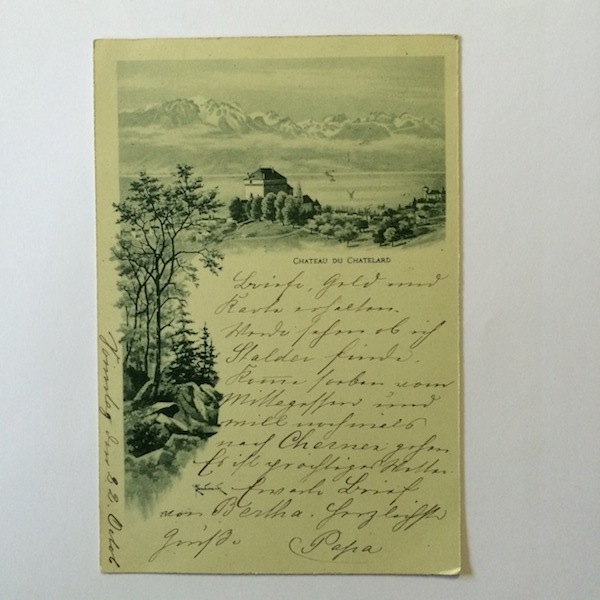 CHATEAU DU CHATELARD
Briefe, Geld und
Karte erhalten.
Werde sehen ob ich
Stalder finde.
Komme soeben vom
Mittagessen und
will nochmals
nach Cherner gehen
Es ist prächtiges Wetter
Erwarte Brief
von Bertha. Herzlichste
Grüße Papa
Sonntag den 22. Octob